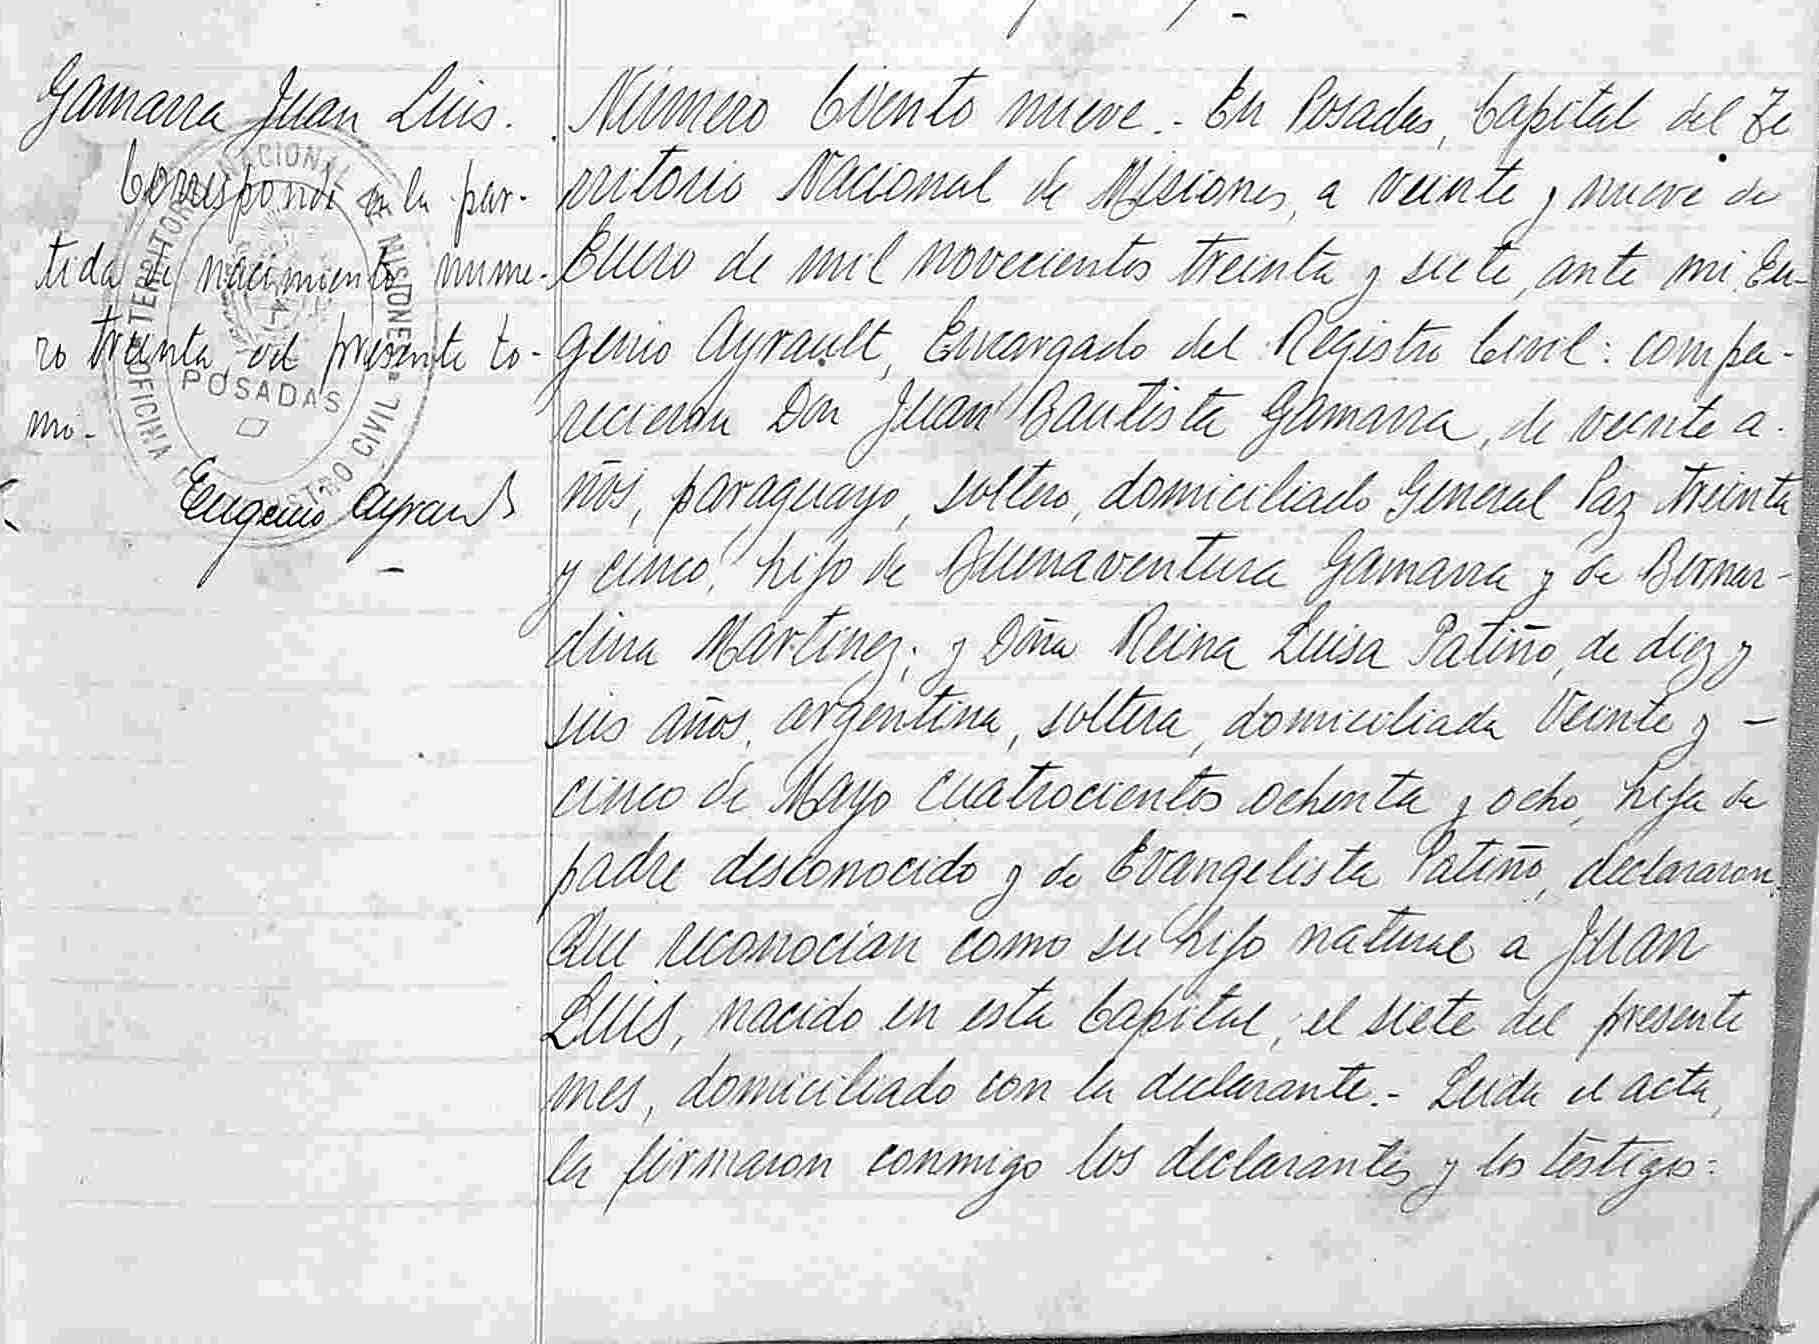 Gamarra Juan Luis.
Corresponde a la par-
tida de nacimiento núme-
ro treinta, del presente to-
mo.-
Eugenio Ayrault
TERRITORIO NACIONAL DE MISIONES
OFICINA REGISTRO CIVIL
POSADAS
Número Ciento nueve.- En Posadas, Capital del Te
rritorio Nacional de Misiones, a veinte y nueve de
Enero de mil novecientos treinta y siete, ante mi, Eu-
genio Ayrault, Encargado del Registro Civil: compa-
recieron Don Juan Bautista Gamarra, de veinte a-
ños, paraguayo, soltero, domiciliado General Paz treinta
y cinco, hijo de Buenaventura Gamarra y de Bernar-
dina Martinez; y Doña Reina Luisa Patiño, de diez y
seis años, argentina, soltera, domiciliada Veinte y -
cinco de Mayo cuatrocientos ochenta y ocho, hija de
padre desconocido y de Evangelista Patiño, declararon:
Que reconocian como su hijo natural a Juan
Luis, nacido en esta Capital, el siete del presente
mes, domiciliado con la declarante.- Leida el acta,
la firmaron conmigo los declarantes y los testigos: